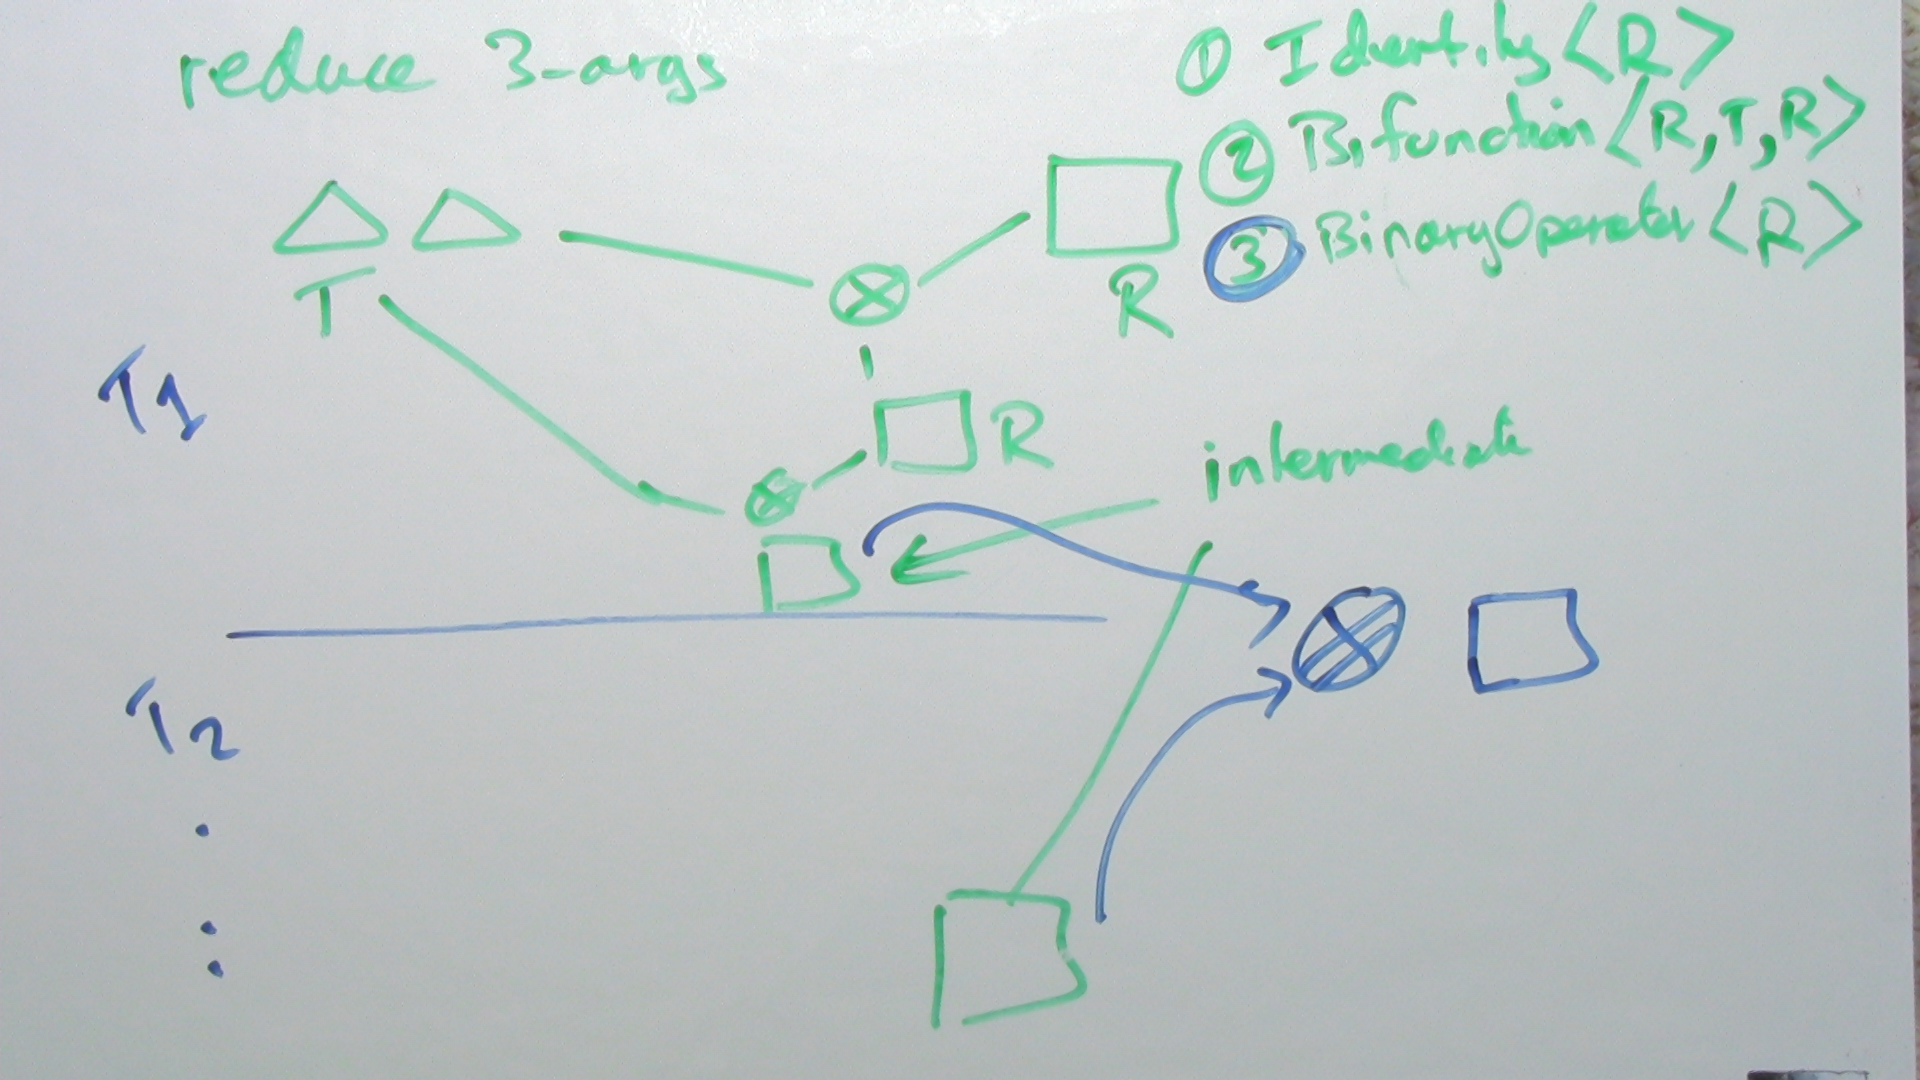 reduce 3-args
① Identity <R>
② Bifunction <R,T,R>
③ BinaryOperator <R>
T
R
T1
R
intermediate
T2